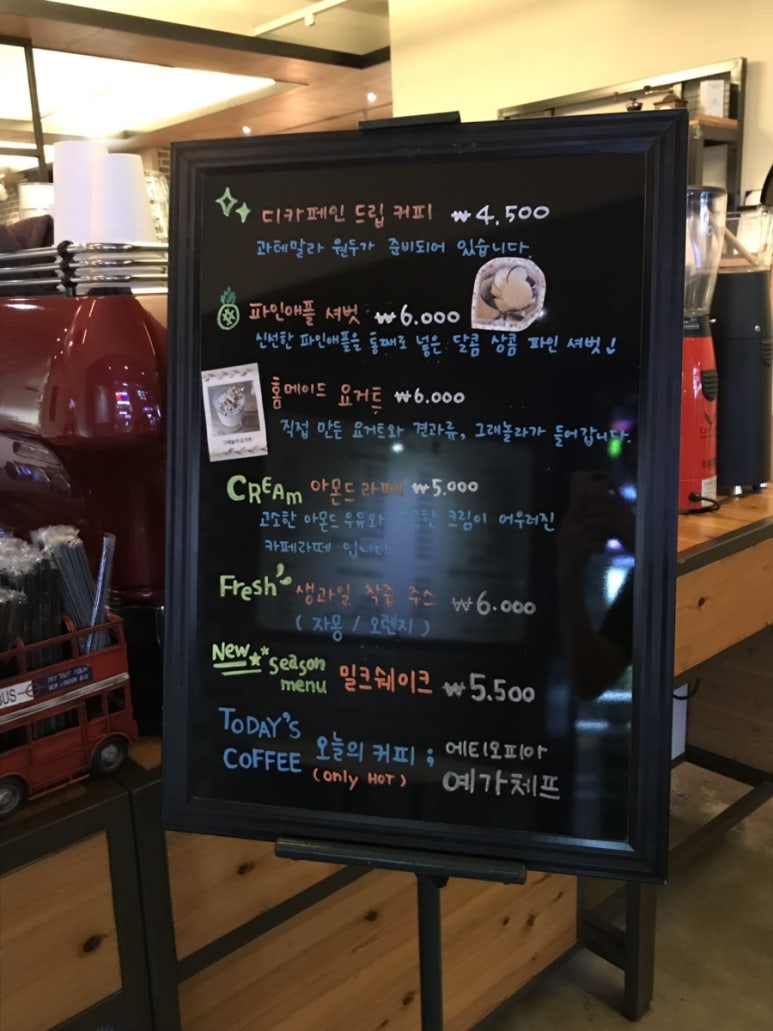 디카페인 드립 커피 ₩4,500
과테말라 원두가 준비되어 있습니다.
파인애플 셔벗 ₩6.000
신선한 파인애플을 통째로 넣은 달콤 상콤 파인 셔벗!
홈메이드 요거트 ₩6.000
직접 만든 요거트와 견과류, 그래놀라가 들어갑니다.
그래놀라 요거트
CREAm 아몬드 라떼 ₩5.000
고소한 아몬드 우유와 크림이 어우러진
카페라떼 입니다
Fresh 생과일 착즙 주스 ₩6.000
(자몽 / 오렌지)
New season menu 밀크쉐이크 ₩5.500
TODAY'S COFFEE 오늘의 커피 ; 에티오피아
(only HOT) 예가체프
BUS